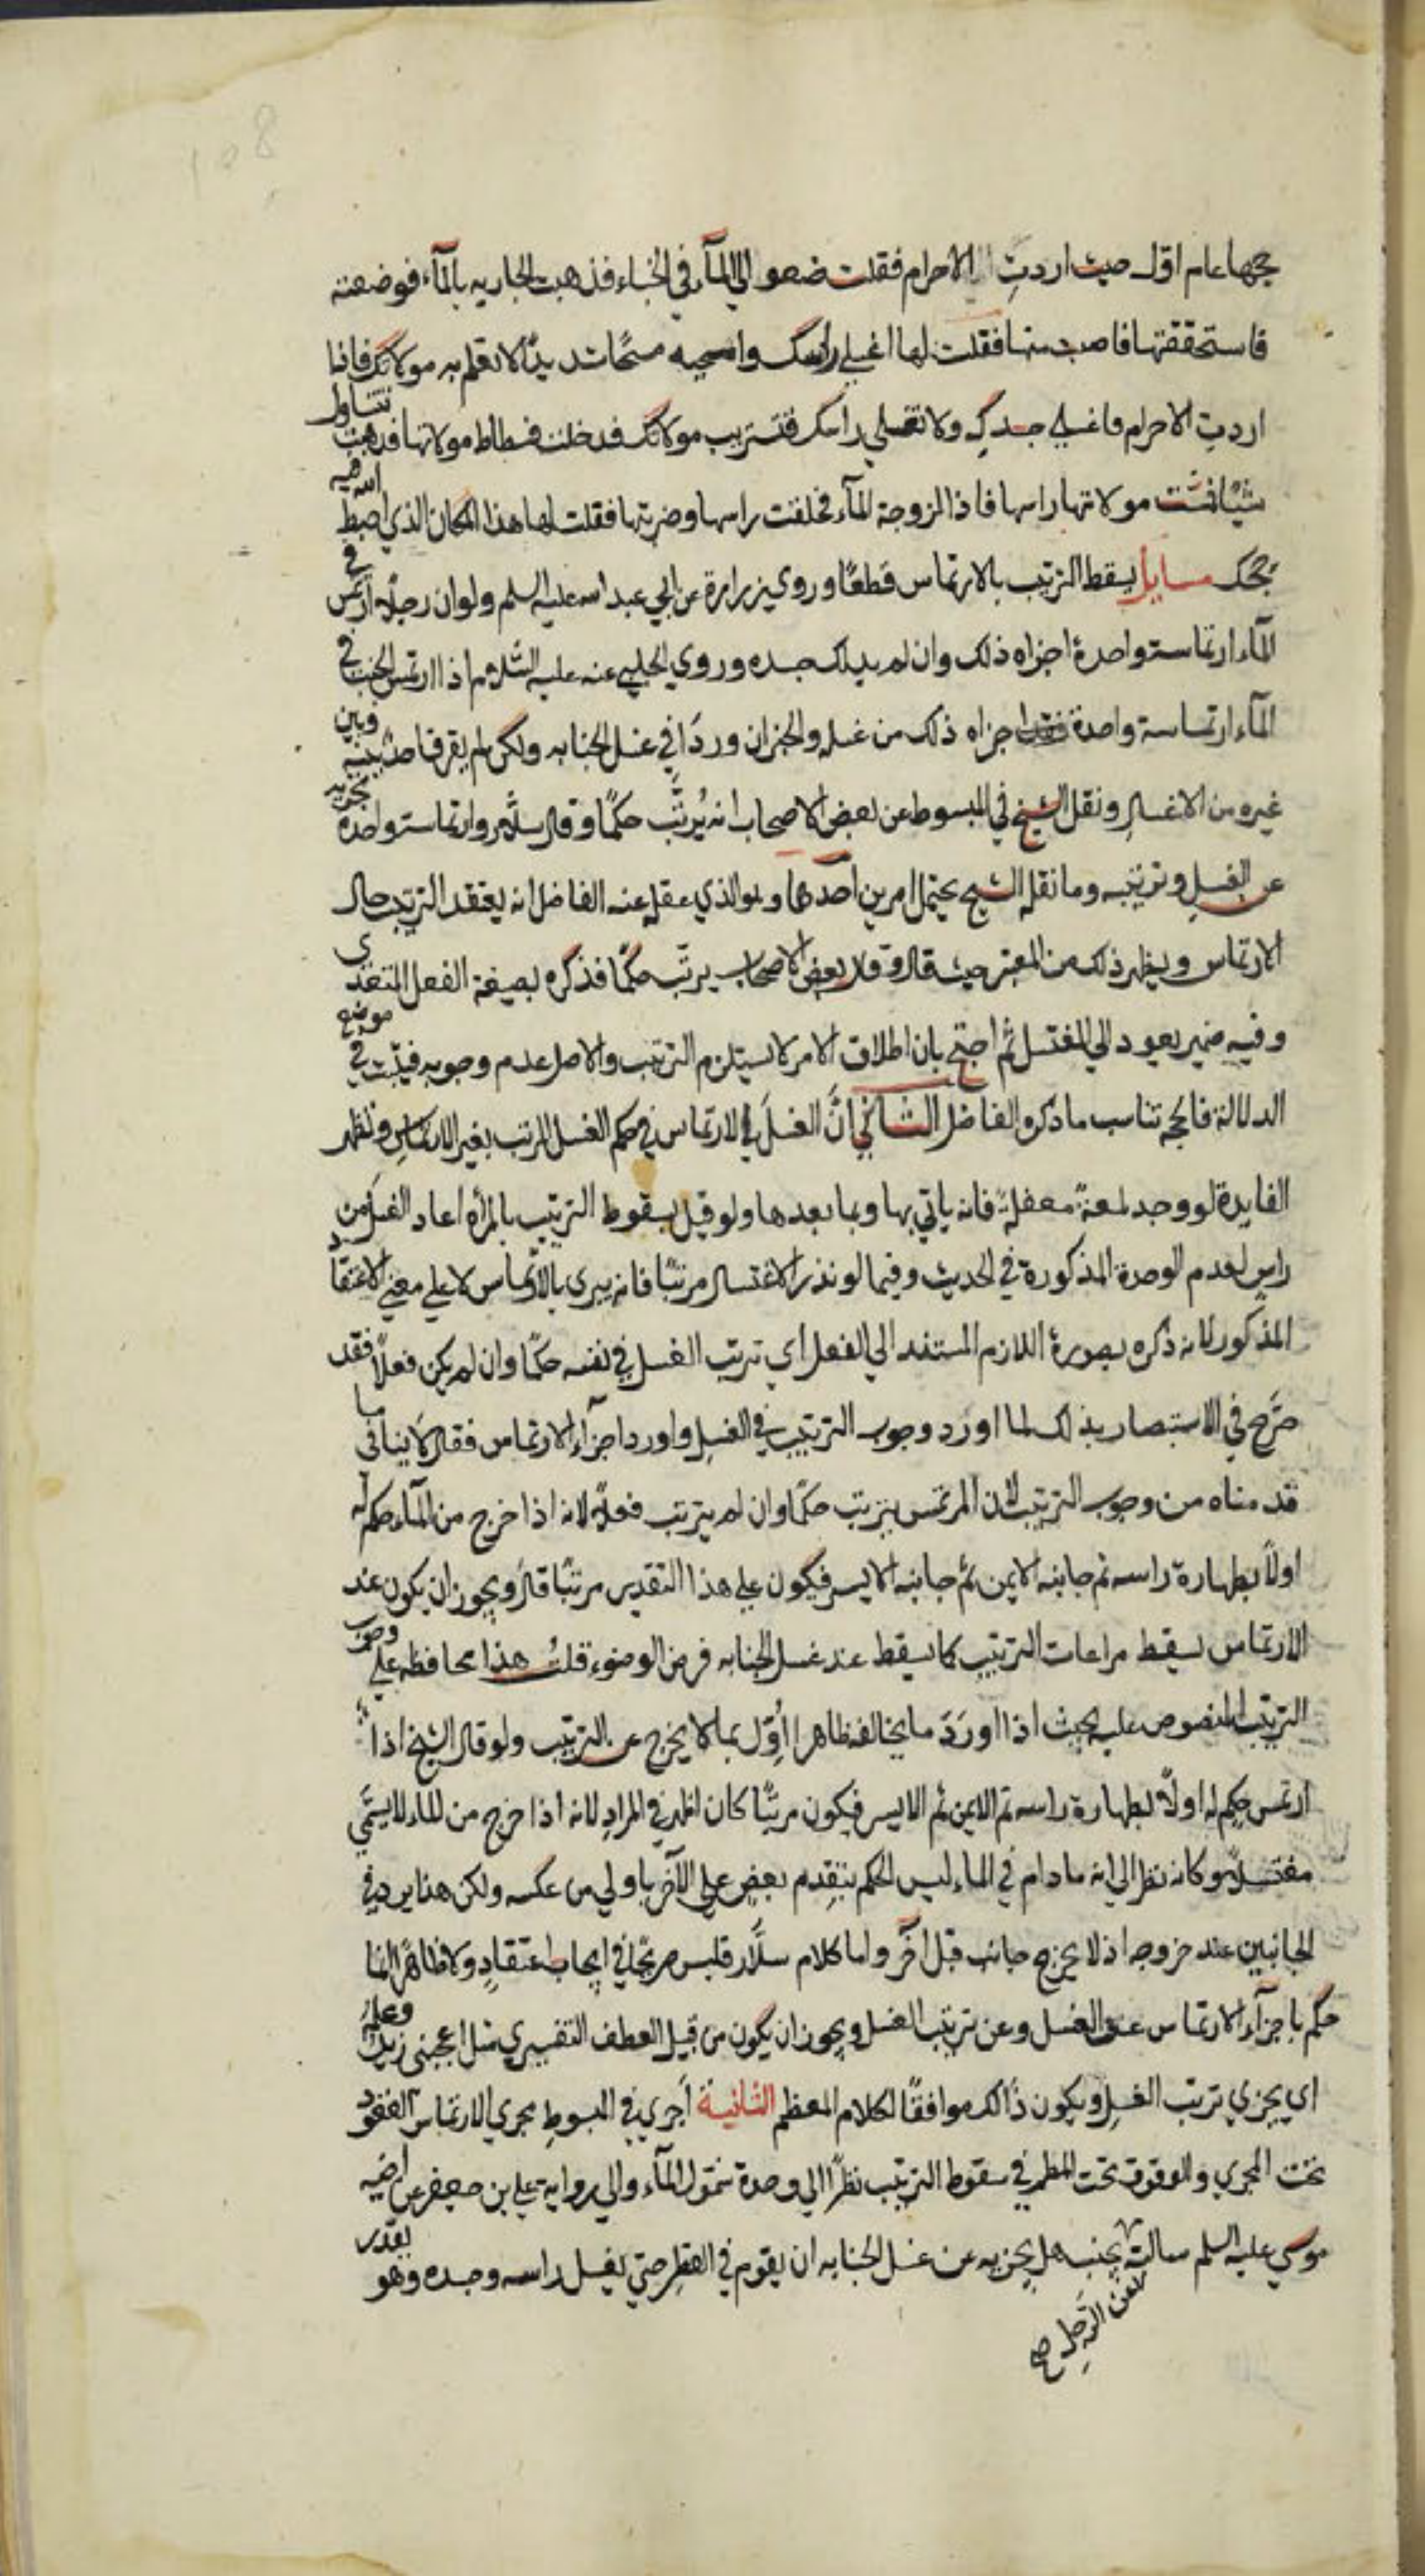 108
حجها عام اول حيث اردت الاحرام فقلت ضعوا لي المآء في الخباء فذهبت الجاريه بالمآء فوضعته
فاستخففتها فاصبت منها فقلت لها اغسلي راسك وامسحيه مسحًا شديدًا لا تعلم به مولاتك فاذا
اردت الاحرام فاغسلي جسدكِ ولا تغسلي راسك فتستريب مولاتك فدخلت فسطاط مولاتها فذهبت تتناول
شيًا فمسّت مولاتها راسها فاذا لزوجة المآء فحلقت راسها وضربتها فقلت لها هذا المكان الذي احبط الله فيه
حجك مسايل يسقط الترتيب بالارتماس قطعًا وروي زرارة عن ابي عبد الله عليه السلم ولو ان رجلًا ارتمس في
المآء ارتماسة واحدة اجزاه ذلك وان لم يدلك جسده وروي الحلبي عنه عليه السّلام اذا ارتمس الجنب في
المآء ارتماسة واحدة اجزاه ذلك من غسله والخبران وردَا في غسل الجنابه ولكن لم يفرق احدٌ بينه وبين
غيره من الاغسال ونقل الشيخ في المبسوط عن بعض الاصحاب انه يُرتَّب حكمًا وقال سلّار وارتماسة واحدة تجزيه
عن الغسل وترتيبه وما نقله الشيخ يحتمل امرين آحدهما وهو الذي عقله عنه الفاضل انه يعتقد الترتيب حال
الارتماس ويظهر ذلك من المعتبر حيث قال وقال بعض الاصحاب يرتّب حكمًا فذكره بصيغة الفعل المتعدي
وفيه ضمير يعود الي المغتسل ثم احتج بان اطلاق الامر لا يستلزم الترتيب والاصل عدم وجوبه فيثبت في موضع
الدلالة فالحجه تناسب ما ذكره الفاضل الثاني انَّ الغسلَ بالارتماس في حكم الغسل المرتب بغير الارتماسِ وتظهر
الفايدة لو وجد لمعة مغفلة فانه ياتي بها وبما بعدها ولو قيل بسقوط الترتيب بالمرة اعاد الغسل من
راسٍ لعدم الوحدة المذكورة في الحديث وفيما لو نذر الاغتسال مرتبًا فانه يبري بالارتماس لا علي معني الاعتقاد
المذكور لانه ذكره بصورة اللازم المستند الي الفعل اي ترتب الغسل في نفسه حكمًا وان لم يكن فعلًا فقد
صَرّح في الاستبصار بذلك لما اورد وجوب الترتيب في الغسل واورد اجزآء الارتماس فقال لا ينافي ما
قدمناه من وجوب الترتيب لان المرتمس يترتب حكمًا وان لم يترتب فعلًا لانه اذا خرج من المآء حكم له
اولًا بطهارة راسه ثم جانبه الايمن ثم جانبه الايسر فيكون علي هذا التقدير مرتبًا قال ويجوز ان يكون عند
الارتماس يسقط مراعات الترتيب كما يسقط عند غسل الجنابه فرض الوضوء قلتُ هذا محافظه علي وجوب
الترتيب المنصوص عليه بحيث اذا اورَد ما يخالفه ظاهرا اُوِّل بما لا يخرج عن الترتيب ولو قال الشيخ اذا
ارتمس حكم له اولًا بطهارة راسه ثم الايمن ثم الايسر فيكون مرتبًا كان اظهر في المراد لانه اذا خرج من الماء لا يسمّي
مغتسلًا وكانه نظر الي انه ما دام في الماء ليس الحكم بتقدم بعض علي الآخر باولي من عكسه ولكن هذا يرد في
الجانبين عند خروجه اذ لا يخرج جانب قبل اخر واما كلام سلَّار فليس صريحًا في ايجاب اعتقادٍ ولا ظاهرًا انما
حكم باجزآء الارتماس عن الغسل وعن ترتيب الغسل ويجوز ان يكون من قبيل العطف التفسيري مثل اعجبني زيد وعلمه
اي يجزي ترتيب الغسل ويكون ذالك موافقًا لكلام المعظم الثانية اجري في المبسوط مجري الارتماس القعود
تحت المجري والوقوف تحت المطر في سقوط الترتيب نظرًا الي وحدة شمول المآء والي رواية علي بن جعفر عن اخيه
موسي عليه السلم سالته يجنب هل يجزيه عن غسل الجنابه ان يقوم في القطر حتي يغسل راسه وجسده وهو يقدر
عن الرَّجلِ صح